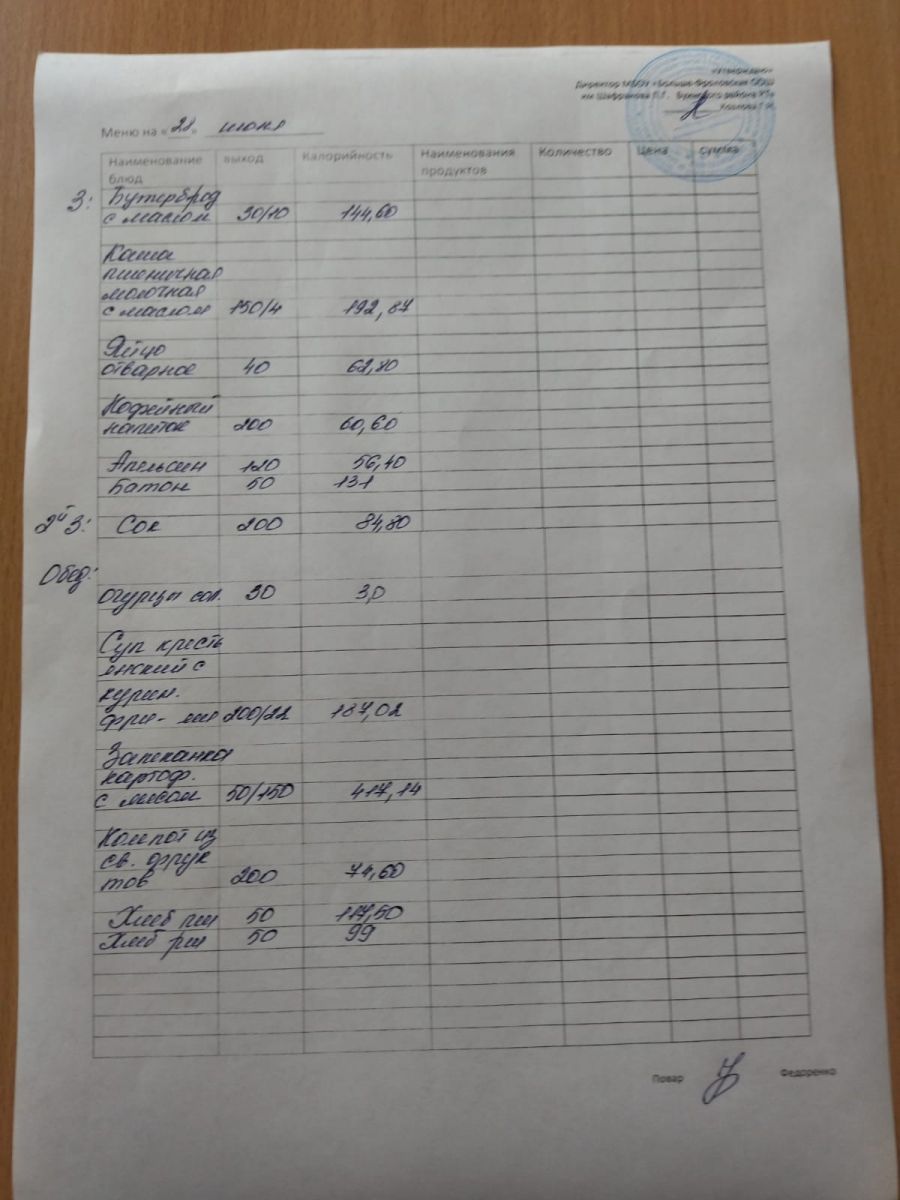 «Утверждаю»
Директор МБОУ «Больше-Фроловская ООШ
им Шафранова П.Г. Буинского района РТ»
Меню на « 28 » июня
Наименование блюд выход Калорийность Наименования продуктов Количество Цена сумма
З: Бутерброд
с маслом 30/10 144,60
Каша
пшеничная
молочная
с маслом 150/4 192,87
Яйцо
отварное 40 62,80
Кофейный
напиток 200 60,60
Апельсин 120 56,40
Батон 50 131
2й З: Сок 200 84,80
Обед:
Огурцы сол. 30 3,0
Суп кресть
янский с
курин.
фри-ми 200/22 187,02
Запеканка
картоф.
с мясом 50/150 417,14
Компот из
св. фрук
тов 200 74,60
Хлеб пш 50 117,50
Хлеб рж 50 99
Повар Федоренко